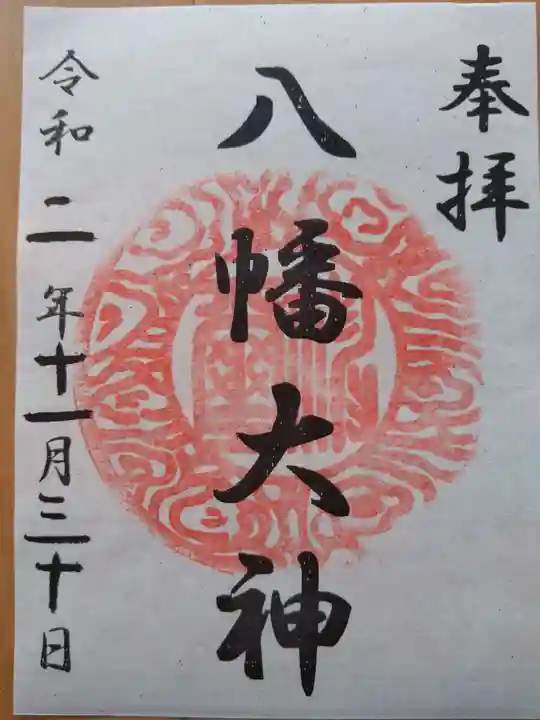 奉拝
八幡大神
令和二年十一月三十日